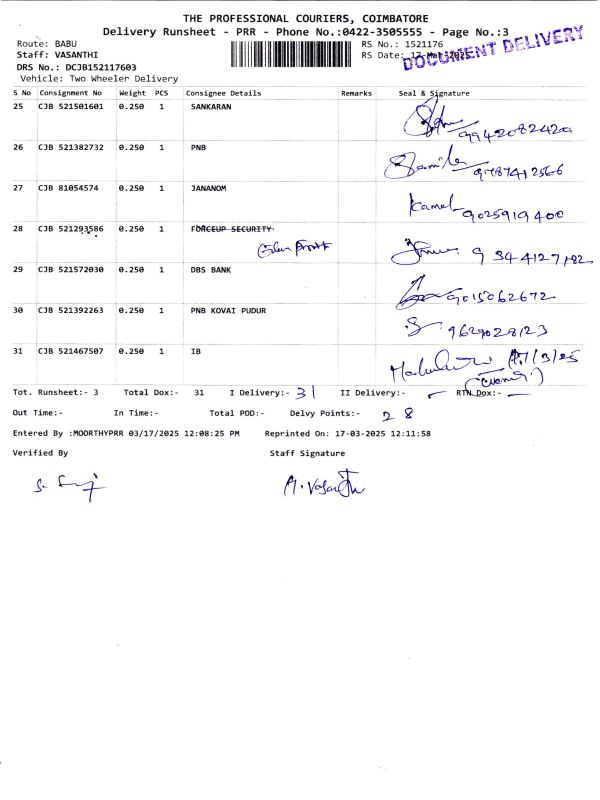 THE PROFESSIONAL COURIERS, COIMBATORE
Delivery Runsheet - PRR - Phone No.:0422-3505555 - Page No.:3
Route: BABU RS No.: 1521176
Staff: VASANTHI RS Date: 17-Mar-2025
DOCUMENT DELIVERY
DRS No.: DCJB152117603
Vehicle: Two Wheeler Delivery
S No Consignment No Weight PCS Consignee Details Remarks Seal & Signature
25 CJB 521501601 0.250 1 SANKARAN
9942082420
26 CJB 521382732 0.250 1 PNB
9787412566
27 CJB 81054574 0.250 1 JANANOM
Kamal 9025919400
28 CJB 521293586 0.250 1 FORCEUP SECURITY
9344127182
29 CJB 521572030 0.250 1 DBS BANK
9015062672
30 CJB 521392263 0.250 1 PNB KOVAI PUDUR
9629028123
31 CJB 521467507 0.250 1 IB
17/3/25
Tot. Runsheet:- 3 Total Dox:- 31 I Delivery:- 31 II Delivery:- - RTN Dox:- -
Out Time:- In Time:- Total POD:- Delvy Points:- 28
Entered By :MOORTHYPRR 03/17/2025 12:08:25 PM Reprinted On: 17-03-2025 12:11:58
Verified By Staff Signature
M. Vasanth